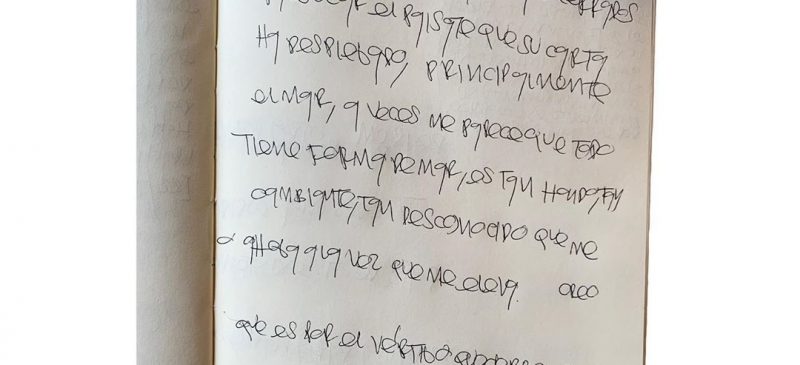 el paisaje que su carta
ha desplegado, principalmente
el mar, a veces me parece que todo
tiene forma de mar, es tan hondo, tan
cambiante, tan desconocido que me
ahoga a la vez que me eleva. Creo
que es por el vértigo